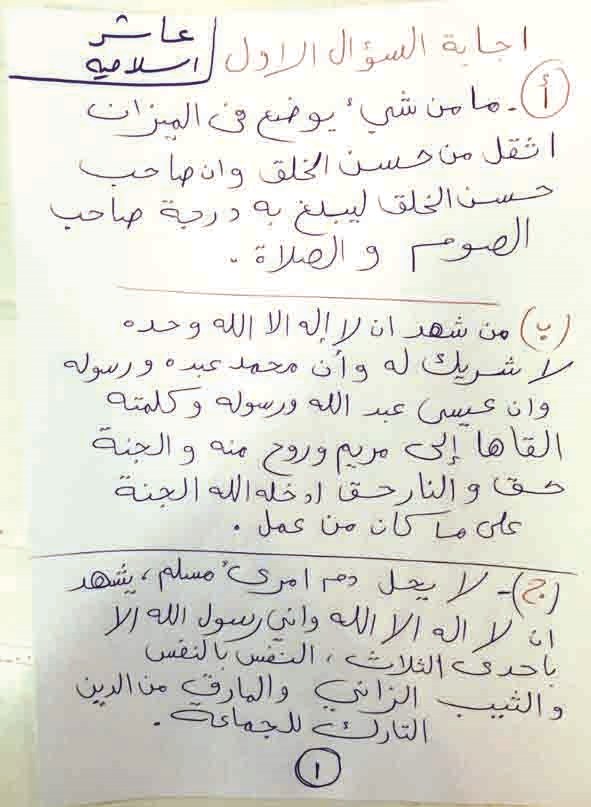 عاشر
اسلاميه
اجابة السؤال الاول
أ - ما من شيء يوضع في الميزان
اثقل من حسن الخلق وان صاحب
حسن الخلق ليبلغ به درجة صاحب
الصوم و الصلاة .
(ب) من شهد ان لا إله الا الله وحده
لا شريك له وأن محمد عبده ورسوله
وان عيسى عبد الله ورسوله وكلمته
القاها إلى مريم وروح منه والجنة
حق والنار حق ادخله الله الجنة
على ما كان من عمل .
(ج) - لا يحل دم امرىء مسلم ، يشهد
ان لا اله الا الله واني رسول الله الا
باحدى الثلاث ، النفس بالنفس
والثيب الزاني والمارق من الدين
التارك للجماعة .
١